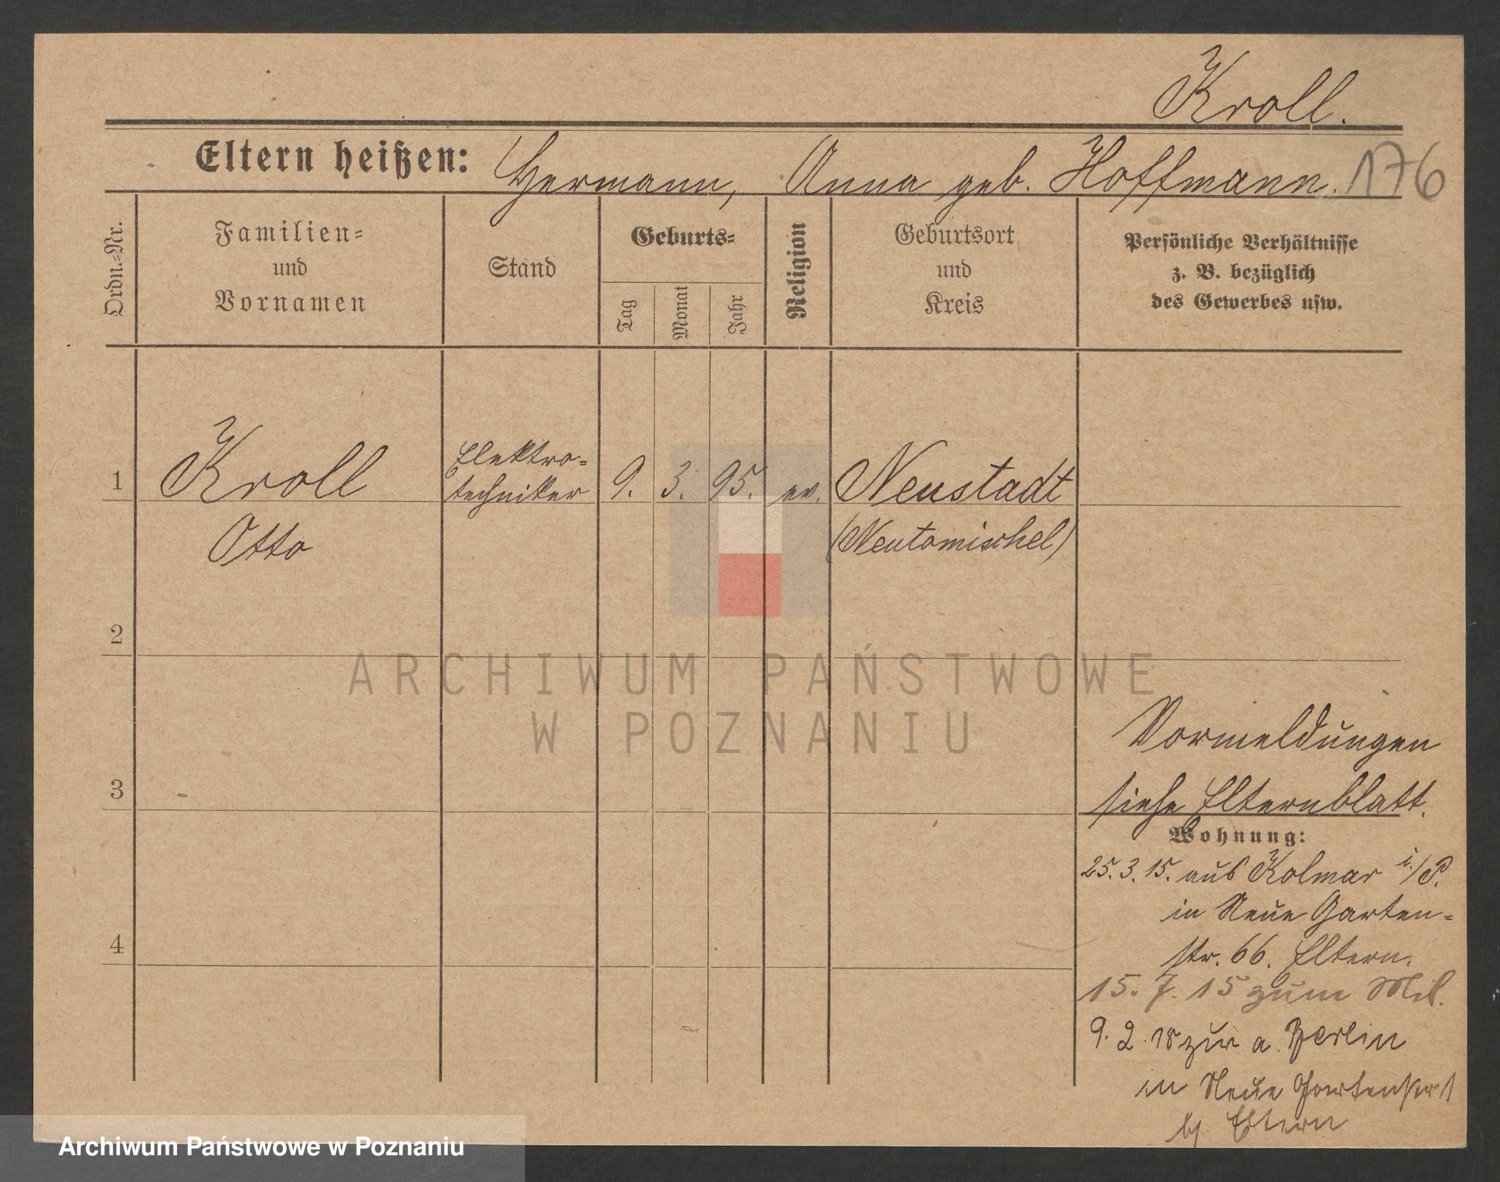 Kroll.
Eltern heißen: Hermann, Anna geb. Hoffmann. 176
Ordn.-Nr.
Familien-
und
Vornamen
Stand
Geburts-
Tag
Monat
Jahr
Religion
Geburtsort
und
Kreis
Persönliche Verhältnisse
z. B. bezüglich
des Gewerbes usw.
1
Kroll
Otto
Elektro-
techniker
9. 3. 95. ev.
Neustadt
(Neutomischel)
2
3
4
Vormeldungen
siehe Elternblatt.
Wohnung:
25.3.15. aus Kolmar i/P.
in Neue Garten-
str. 66. Eltern.
15. 7. 15 zum Mil.
9. 2. 18 zur a. Berlin
in Neue Gartenstr
bj. Eltern
ARCHIWUM PAŃSTWOWE
W POZNANIU
Archiwum Państwowe w Poznaniu